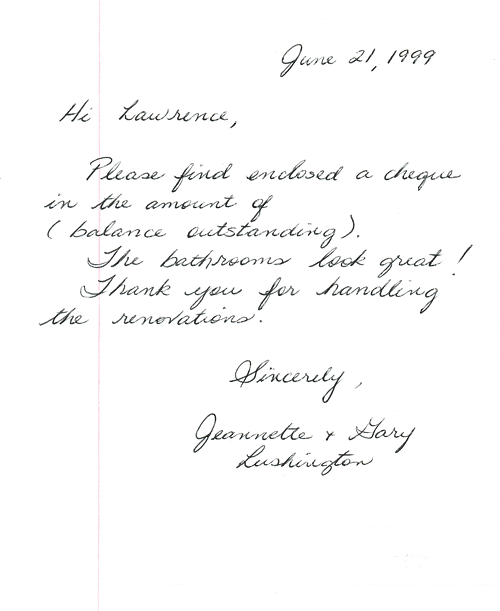 June 21, 1999
Hi Lawrence,
Please find enclosed a cheque
in the amount of
( balance outstanding ).
The bathrooms look great !
Thank you for handling
the renovations.
Sincerely,
Jeannette + Gary
Lushington